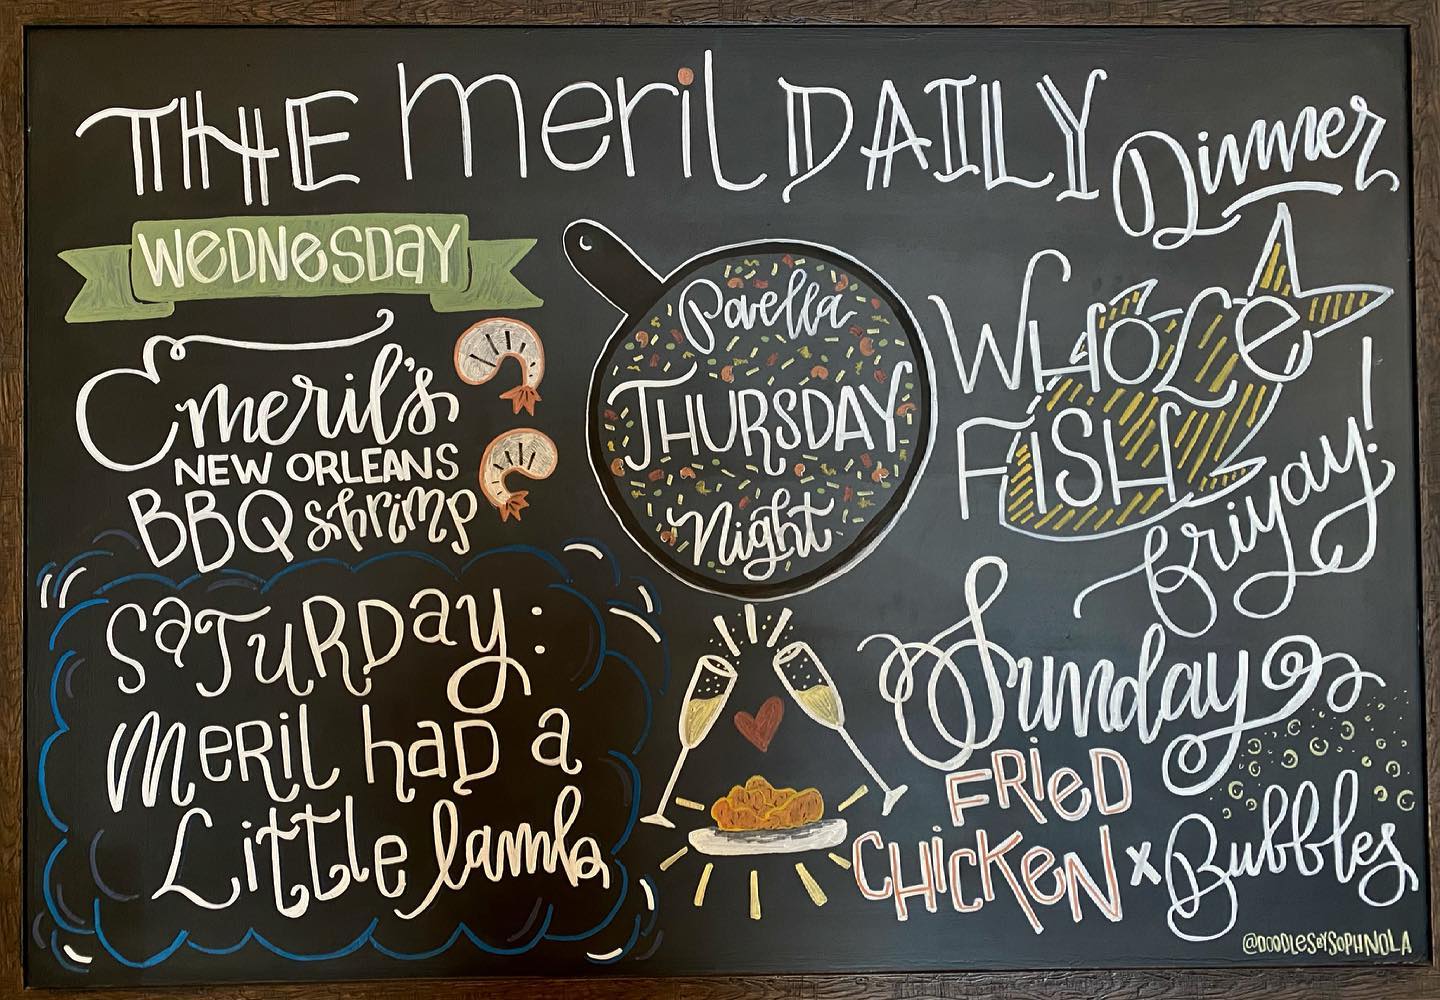 THE meril DAILY Dinner
WEDNESDAY
Emeril's
NEW ORLEANS
BBQ shrimp
Paella
THURSDAY
Night
WHOLE
FISH
Friyay!
SATURDAY:
MERIL HAD A
LITTLE lamb
Sunday
FRIED
CHICKEN x Bubbles
@DOODLESBYSOPHNOLA